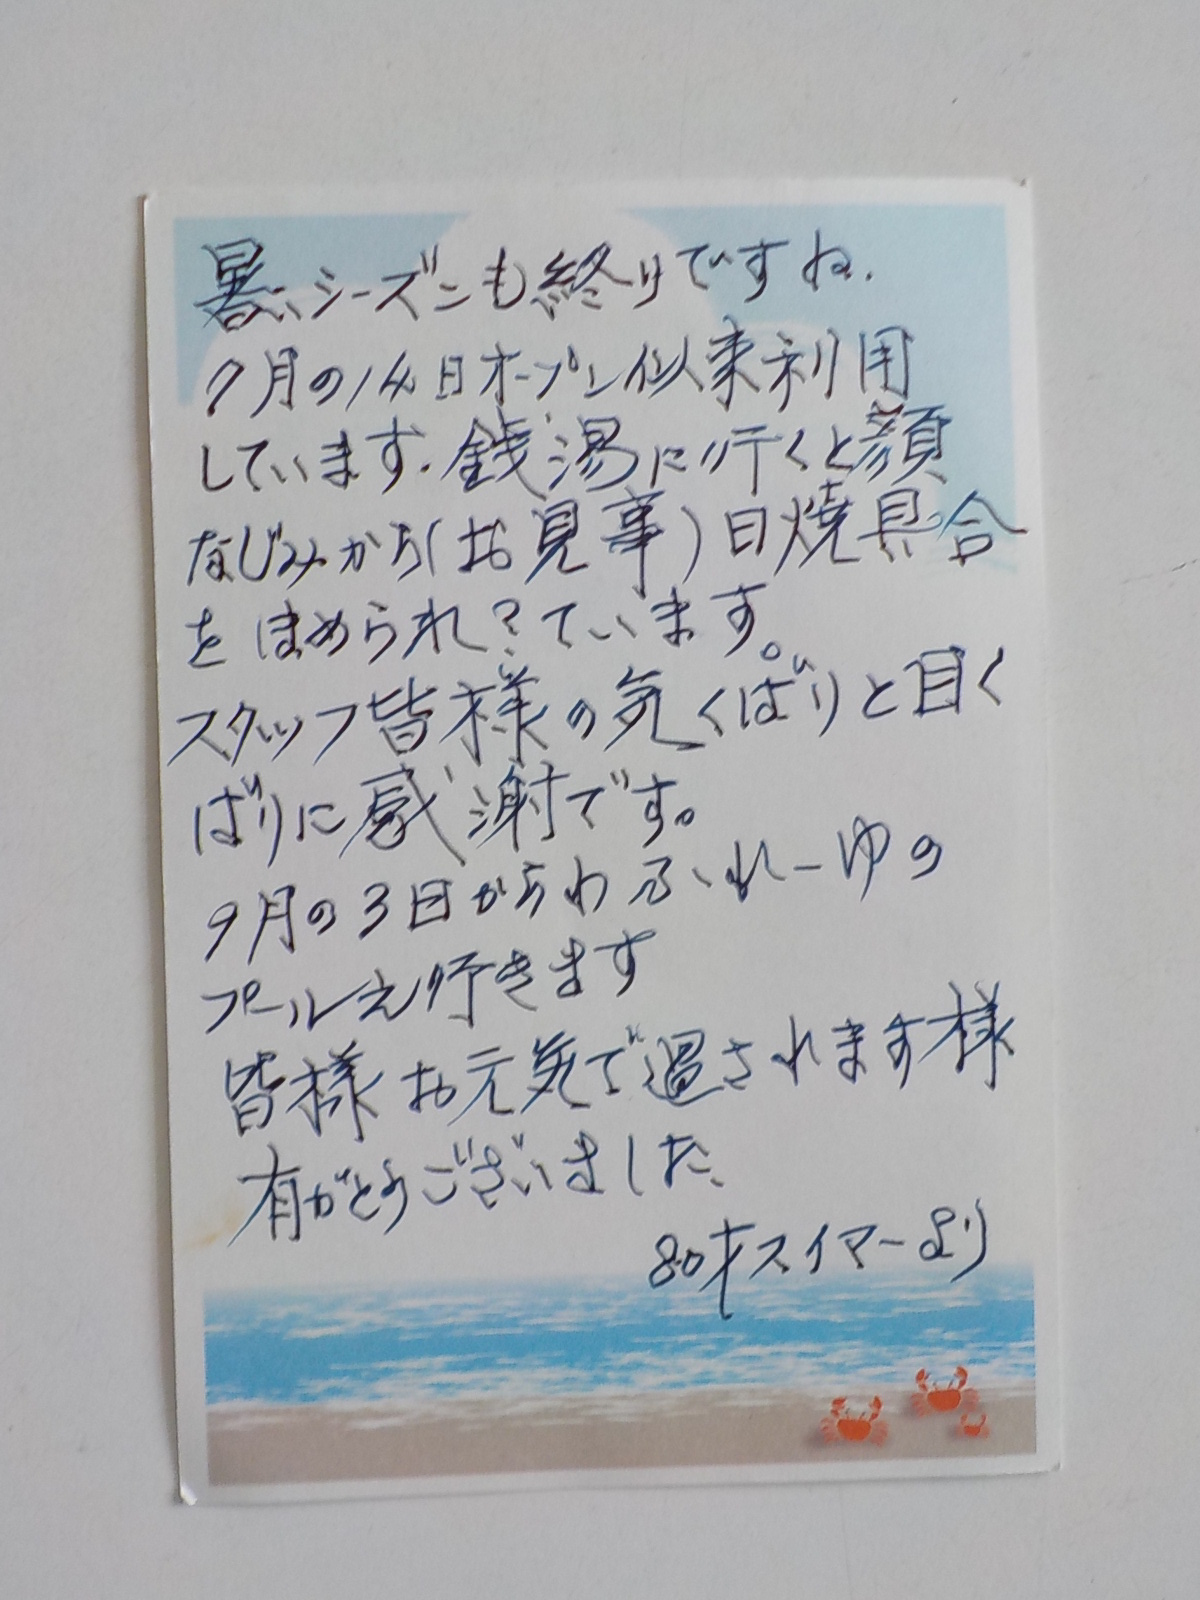 暑いシーズンも終りですね.
7月の14日オープン似来利用
しています.銭湯に行くと顔
なじみから(お見事)日焼具合
をほめられ?ています。
スタッフ皆様の気くばりと目く
ばりに感謝です。
9月の3日からわふれーゆの
プールえ行きます
皆様お元気で過されます様
有がとうございました、
80才スイマーより